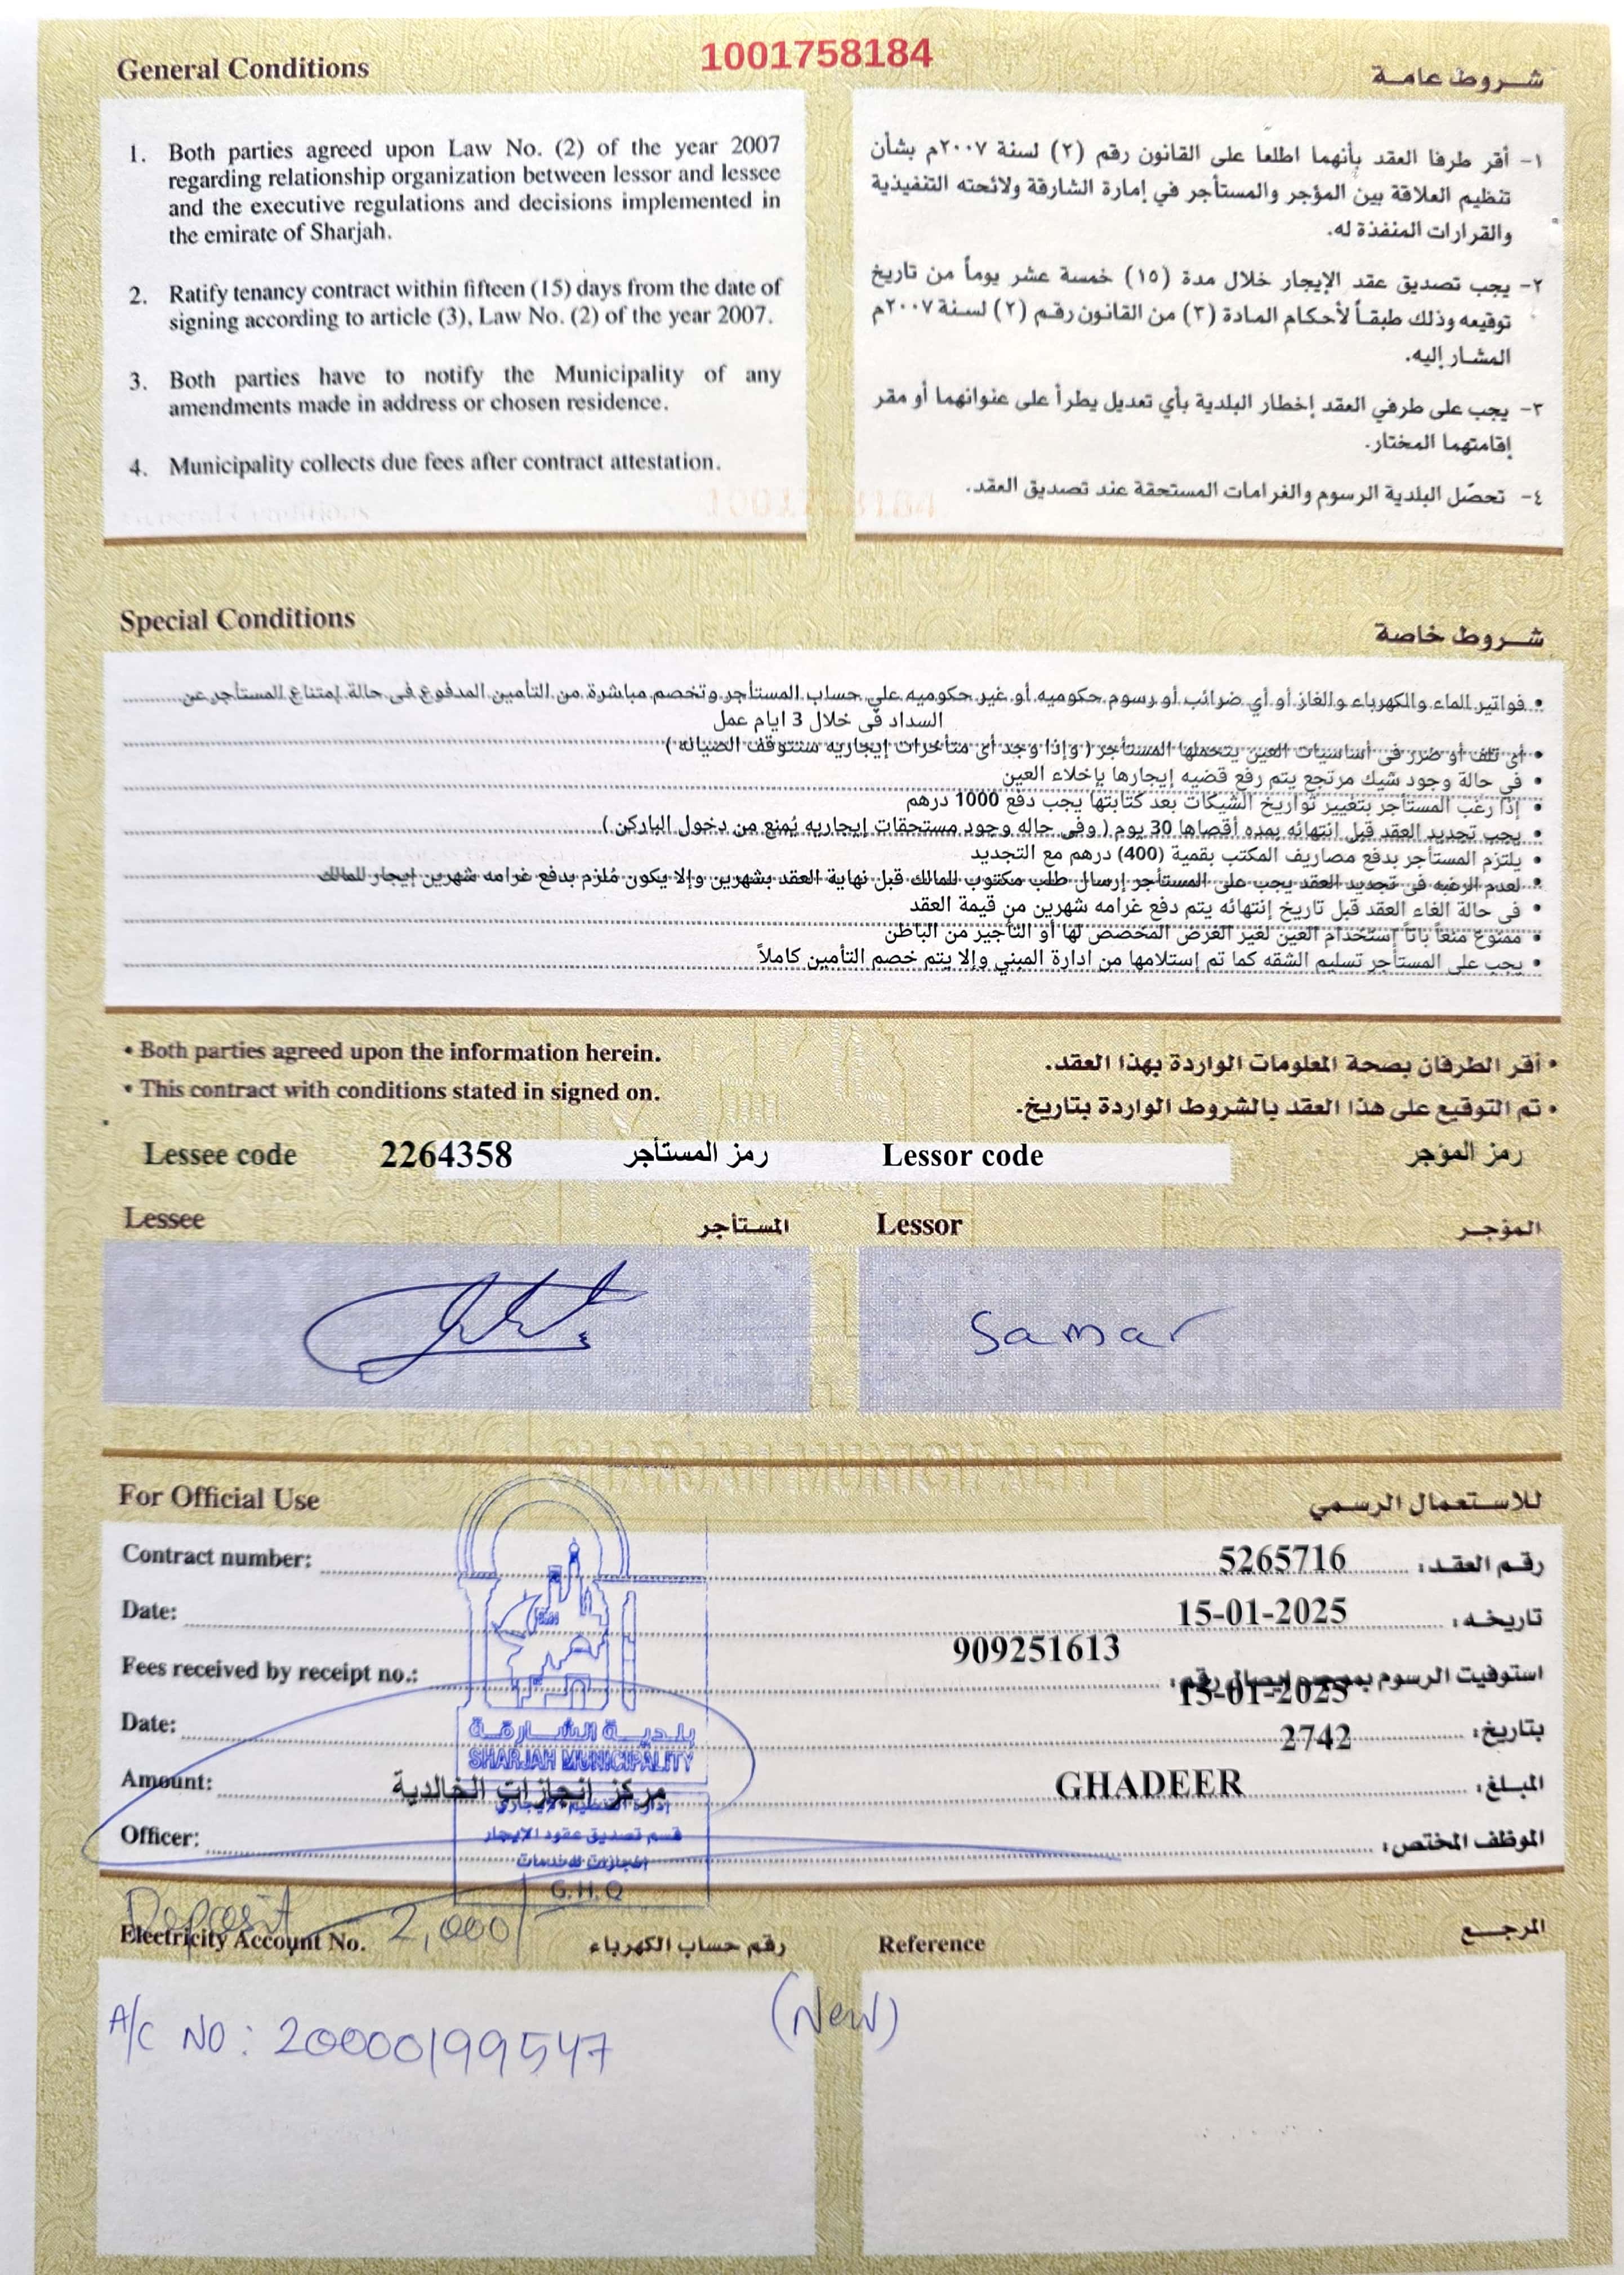 1001758184
General Conditions
شروط عامة
1. Both parties agreed upon Law No. (2) of the year 2007
regarding relationship organization between lessor and lessee
and the executive regulations and decisions implemented in
the emirate of Sharjah.
2. Ratify tenancy contract within fifteen (15) days from the date of
signing according to article (3), Law No. (2) of the year 2007.
3. Both parties have to notify the Municipality of any
amendments made in address or chosen residence.
4. Municipality collects due fees after contract attestation.
١- أقر طرفا العقد بأنهما اطلعا على القانون رقم (٢) لسنة ٢٠٠٧م بشأن
تنظيم العلاقة بين المؤجر والمستأجر في إمارة الشارقة ولائحته التنفيذية
والقرارات المنفذة له.
٢- يجب تصديق عقد الإيجار خلال مدة (١٥) خمسة عشر يوماً من تاريخ
توقيعه وذلك طبقاً لأحكام المادة (٣) من القانون رقم (٢) لسنة ٢٠٠٧م
المشار إليه.
٣- يجب على طرفي العقد إخطار البلدية بأي تعديل يطرأ على عنوانهما أو مقر
إقامتهما المختار.
٤- تحصّل البلدية الرسوم والغرامات المستحقة عند تصديق العقد.
Special Conditions
شروط خاصة
• فواتير الماء والكهرباء والغاز أو أي ضرائب أو رسوم حكوميه أو غير حكوميه علي حساب المستأجر وتخصم مباشرة من التأمين المدفوع في حالة إمتناع المستأجر عن
السداد في خلال 3 ايام عمل
• أي تلف أو ضرر في أساسيات العين يتحملها المستأجر ( وإذا وجد أي متأخرات إيجاريه ستتوقف الصيانه )
• في حالة وجود شيك مرتجع يتم رفع قضيه إيجارها بإخلاء العين
• إذا رغب المستأجر بتغيير تواريخ الشيكات بعد كتابتها يجب دفع 1000 درهم
• يجب تجديد العقد قبل إنتهائه بمده أقصاها 30 يوم ( وفي حاله وجود مستحقات إيجاريه يُمنع من دخول الباركن )
• يلتزم المستأجر بدفع مصاريف المكتب بقمية (400) درهم مع التجديد
• لعدم الرغبه في تجديد العقد يجب على المستأجر إرسال طلب مكتوب للمالك قبل نهاية العقد بشهرين وإلا يكون مُلزم بدفع غرامه شهرين إيجار للمالك
• في حالة الغاء العقد قبل تاريخ إنتهائه يتم دفع غرامه شهرين من قيمة العقد
• ممنوع منعاً باتاً إستخدام العين لغير الغرض المخصص لها أو التأجير من الباطن
• يجب على المستأجر تسليم الشقه كما تم إستلامها من ادارة المبني وإلا يتم خصم التأمين كاملاً
• Both parties agreed upon the information herein.
• أقر الطرفان بصحة المعلومات الواردة بهذا العقد.
• This contract with conditions stated in signed on.
• تم التوقيع على هذا العقد بالشروط الواردة بتاريخ.
Lessee code 2264358 رمز المستأجر Lessor code رمز المؤجر
Lessee المستأجر Lessor المؤجر
Samar
For Official Use
للاستعمال الرسمي
Contract number: 5265716 رقم العقد:
Date: 15-01-2025 تاريخه:
909251613
Fees received by receipt no.: استوفيت الرسوم بموجب إيصال رقم:
15-01-2025
Date: 2742 بتاريخ:
بلدية الشارقة
SHARJAH MUNICIPALITY
Amount: مركز إنجازات الخالدية GHADEER المبلغ:
إدارة التنظيم الإيجاري
قسم تصديق عقود الايجار
Officer: الموظف المختص:
انجازات للخدمات
G.H.Q
Deposit 2,000/
Electricity Account No. رقم حساب الكهرباء Reference المرجع
(New)
A/C NO: 20000199547